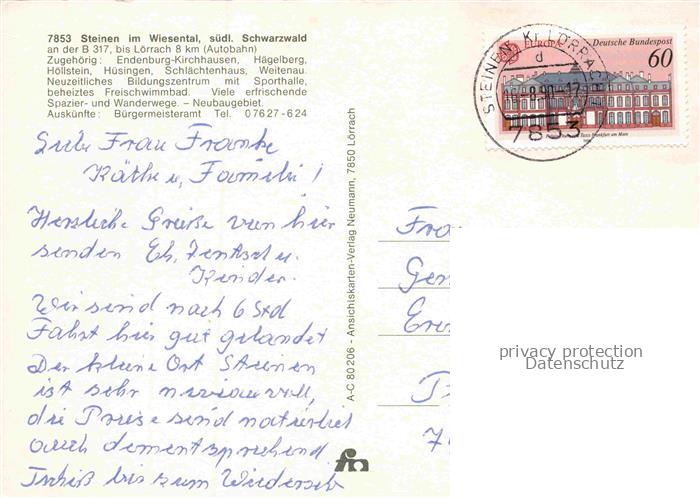 7853 Steinen im Wiesental, südl. Schwarzwald
an der B 317, bis Lörrach 8 km (Autobahn)
Zugehörig: Endenburg-Kirchhausen, Hägelberg,
Höllstein, Hüsingen, Schlächtenhaus, Weitenau.
Neuzeitliches Bildungszentrum mit Sporthalle,
beheiztes Freischwimmbad. Viele erfrischende
Spazier- und Wanderwege. – Neubaugebiet.
Auskünfte: Bürgermeisteramt Tel. 07627-624
Liebe Frau Franke
Käthe u, Familie!
Herzliche Grüße von hier
senden Eh, Zentsch u.
Kinder.
Wir sind nach 6 Std
Fahrt hier gut gelandet
Der kleine Ort Steinen
ist sehr niveauvoll,
die Preise sind natürlich
auch dementsprechend
Tschüß bis zum Wiederseh
A-C 80206 - Ansichtskarten-Verlag Neumann, 7850 Lörrach
EUROPA
Deutsche Bundespost
60
Taxis Frankfurt am Main
STEINEN, Kr LÖRRACH
d
-8.90-17
7853
Fra
Gen
7
privacy protection
Datenschutz